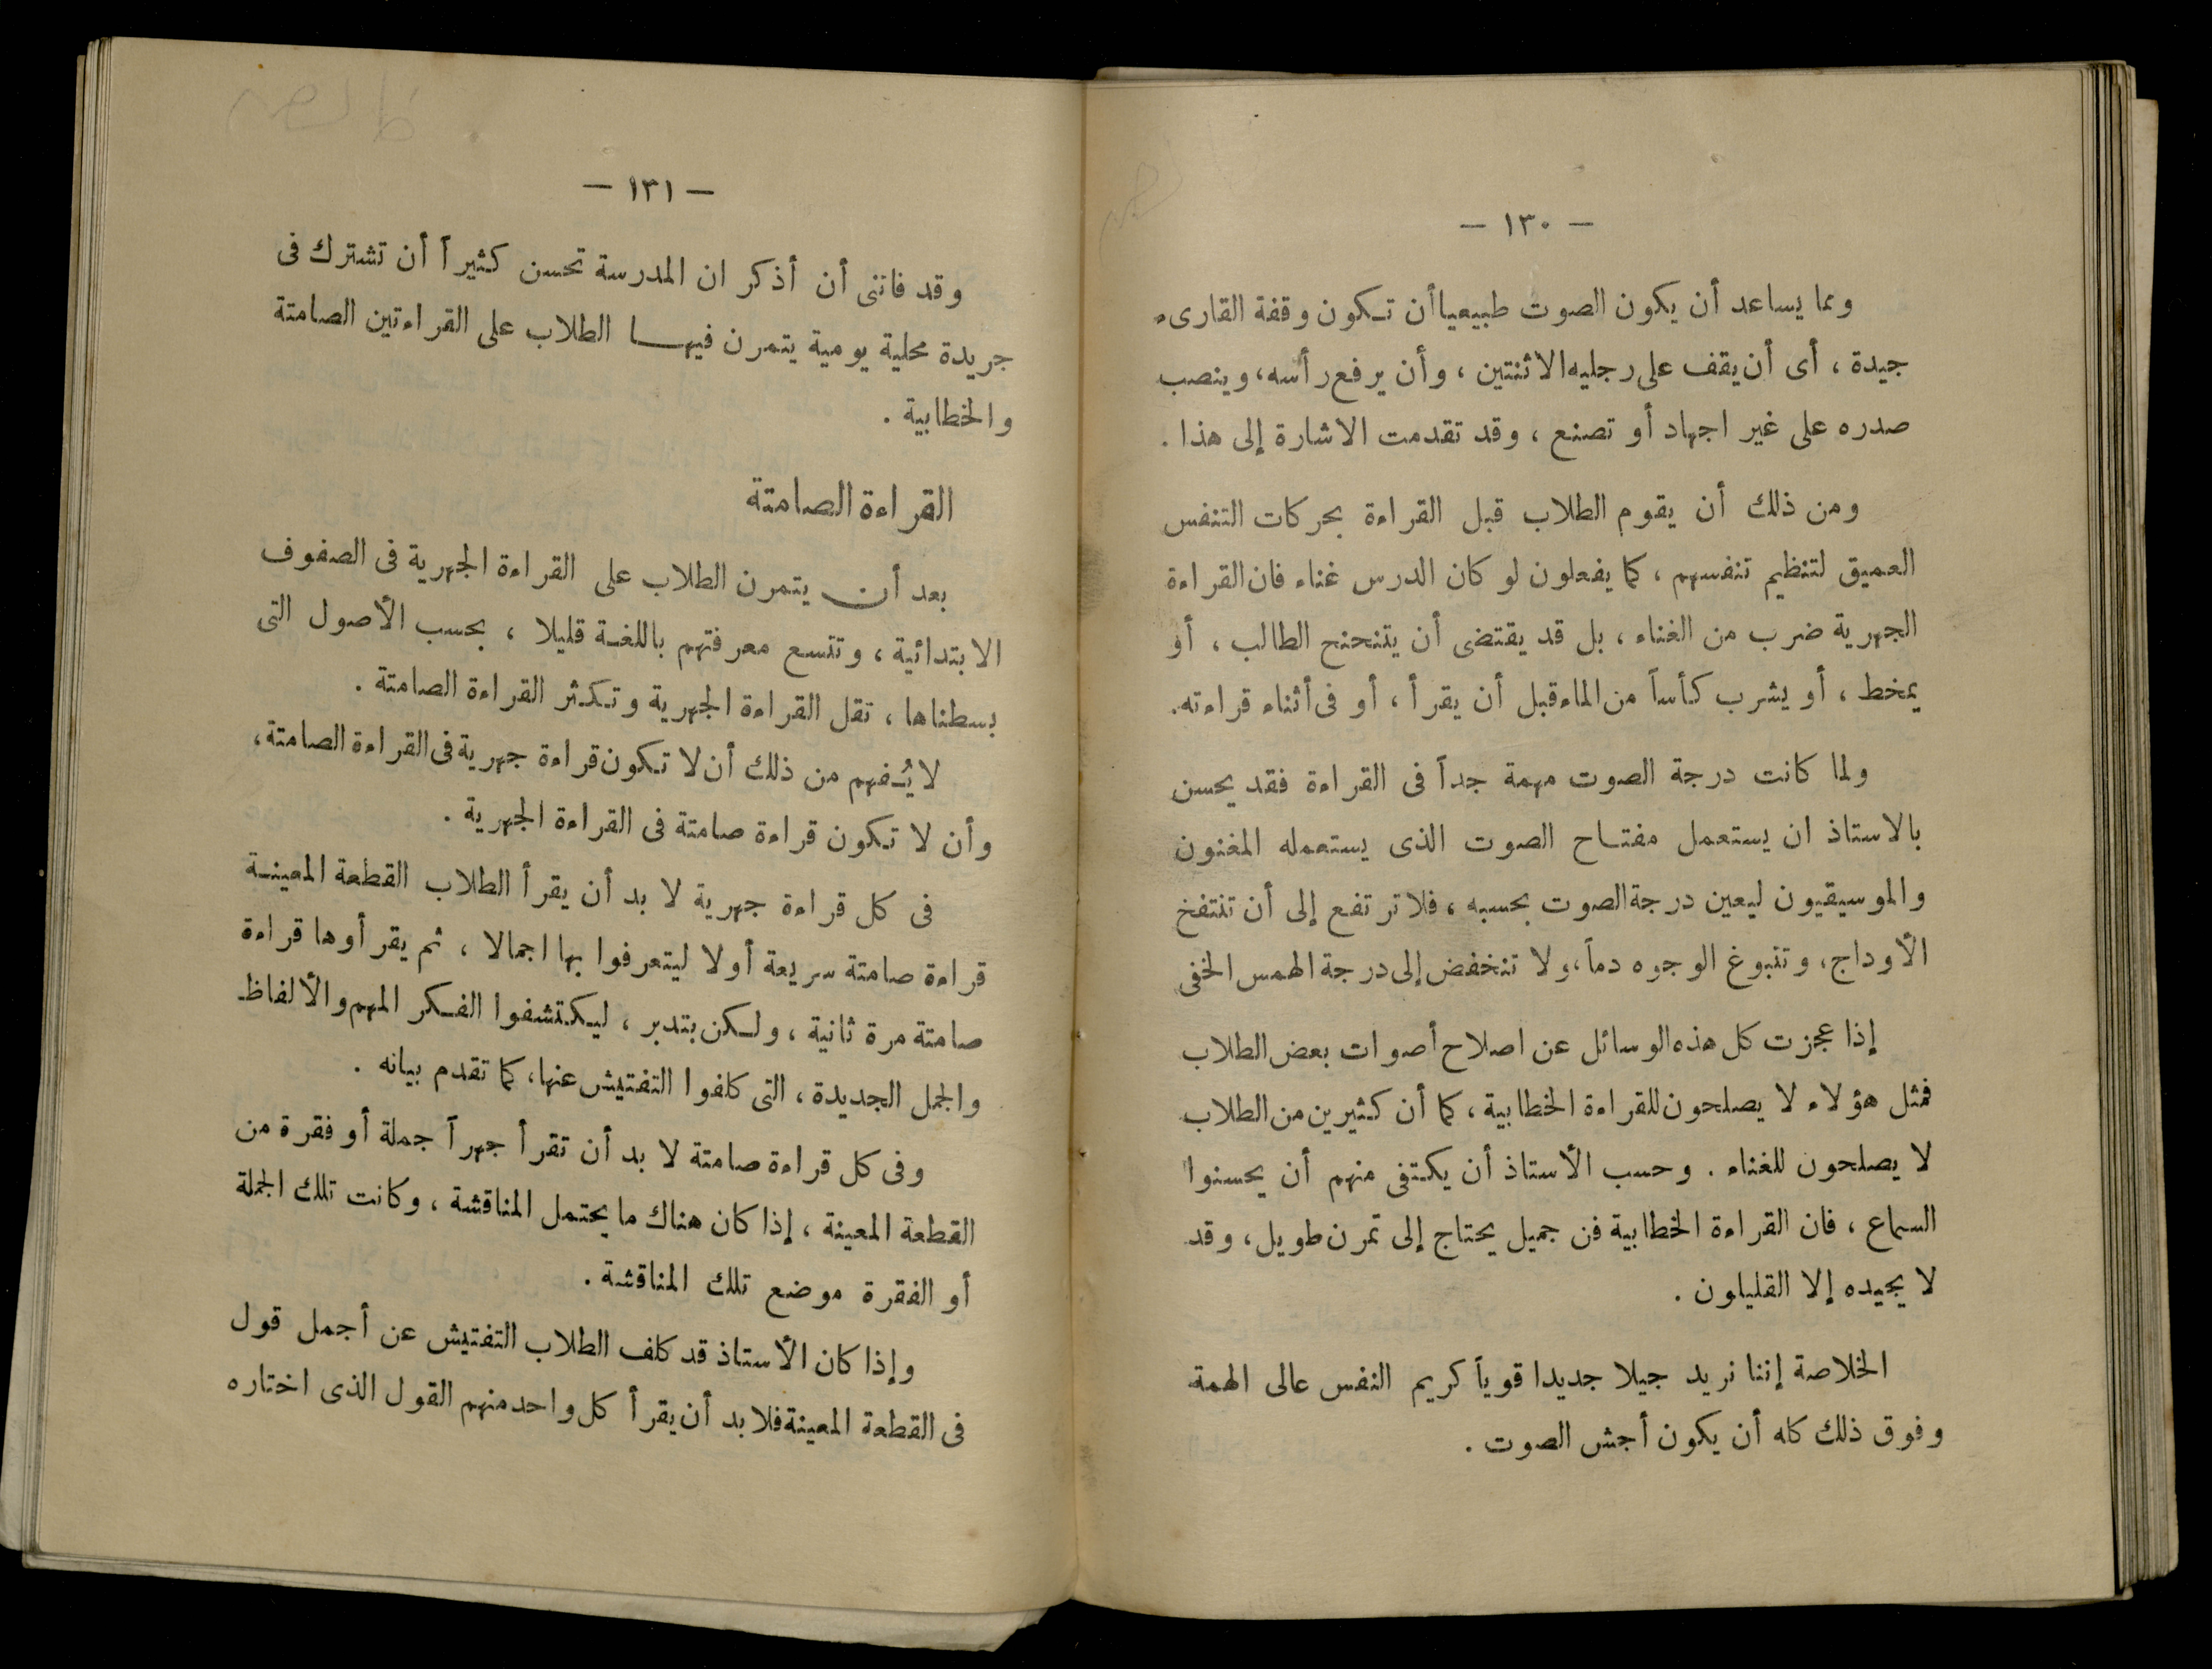 — ١٣٠ —
ومما يساعد أن يكون الصوت طبيعيا أن تكون وقفة القارىء
جيدة ، أى أن يقف على رجليه الاثنتين ، وأن يرفع رأسه ، وينصب
صدره على غير اجهاد أو تصنع ، وقد تقدمت الاشارة إلى هذا .
ومن ذلك أن يقوم الطلاب قبل القراءة بحركات التنفس
العميق لتنظيم تنفسهم ، كما يفعلون لو كان الدرس غناء فان القراءة
الجهرية ضرب من الغناء ، بل قد يقتضى أن يتنحنح الطالب ، أو
يمخط ، أو يشرب كأساً من الماء قبل أن يقرأ ، أو فى أثناء قراءته .
ولما كانت درجة الصوت مهمة جداً فى القراءة فقد يحسن
بالاستاذ ان يستعمل مفتاح الصوت الذى يستعمله المغنون
والموسيقيون ليعين درجة الصوت بحسبه ، فلا ترتفع إلى أن تنتفخ
الأوداج ، وتتبوغ الوجوه دماً ، ولا تنخفض إلى درجة الهمس الخفى
إذا عجزت كل هذه الوسائل عن اصلاح أصوات بعض الطلاب
فمثل هؤلاء لا يصلحون للقراءة الخطابية ، كما أن كثيرين من الطلاب
لا يصلحون للغناء . وحسب الأستاذ أن يكتفى منهم أن يحسنوا
السماع ، فان القراءة الخطابية فن جميل يحتاج إلى تمرن طويل ، وقد
لا يجيده إلا القليلون .
الخلاصة إننا نريد جيلا جديدا قوياً كريم النفس عالى الهمة
وفوق ذلك كله أن يكون أجش الصوت .
— ١٣١ —
وقد فاتنى أن أذكر ان المدرسة تحسن كثيراً أن تشترك فى
جريدة محلية يومية يتمرن فيها الطلاب على القراءتين الصامتة
والخطابية .
القراءة الصامتة
بعد أن يتمرن الطلاب على القراءة الجهرية فى الصفوف
الابتدائية ، وتتسع معرفتهم باللغة قليلا ، بحسب الأصول التى
بسطناها ، تقل القراءة الجهرية وتكثر القراءة الصامتة .
لا يُفهم من ذلك أن لا تكون قراءة جهرية فى القراءة الصامتة ،
وأن لا تكون قراءة صامتة فى القراءة الجهرية .
فى كل قراءة جهرية لا بد أن يقرأ الطلاب القطعة المعينة
قراءة صامتة سريعة أولا ليتعرفوا بها اجمالا ، ثم يقرأوها قراءة
صامتة مرة ثانية ، ولكن بتدبر ، ليكتشفوا الفكر المهم والألفاظ
والجمل الجديدة ، التى كلفوا التفتيش عنها ، كما تقدم بيانه .
وفى كل قراءة صامتة لا بد أن تقرأ جهراً جملة أو فقرة من
القطعة المعينة ، إذا كان هناك ما يحتمل المناقشة ، وكانت تلك الجملة
أو الفقرة موضع تلك المناقشة .
وإذا كان الأستاذ قد كلف الطلاب التفتيش عن أجمل قول
فى القطعة المعينة فلا بد أن يقرأ كل واحد منهم القول الذى اختاره